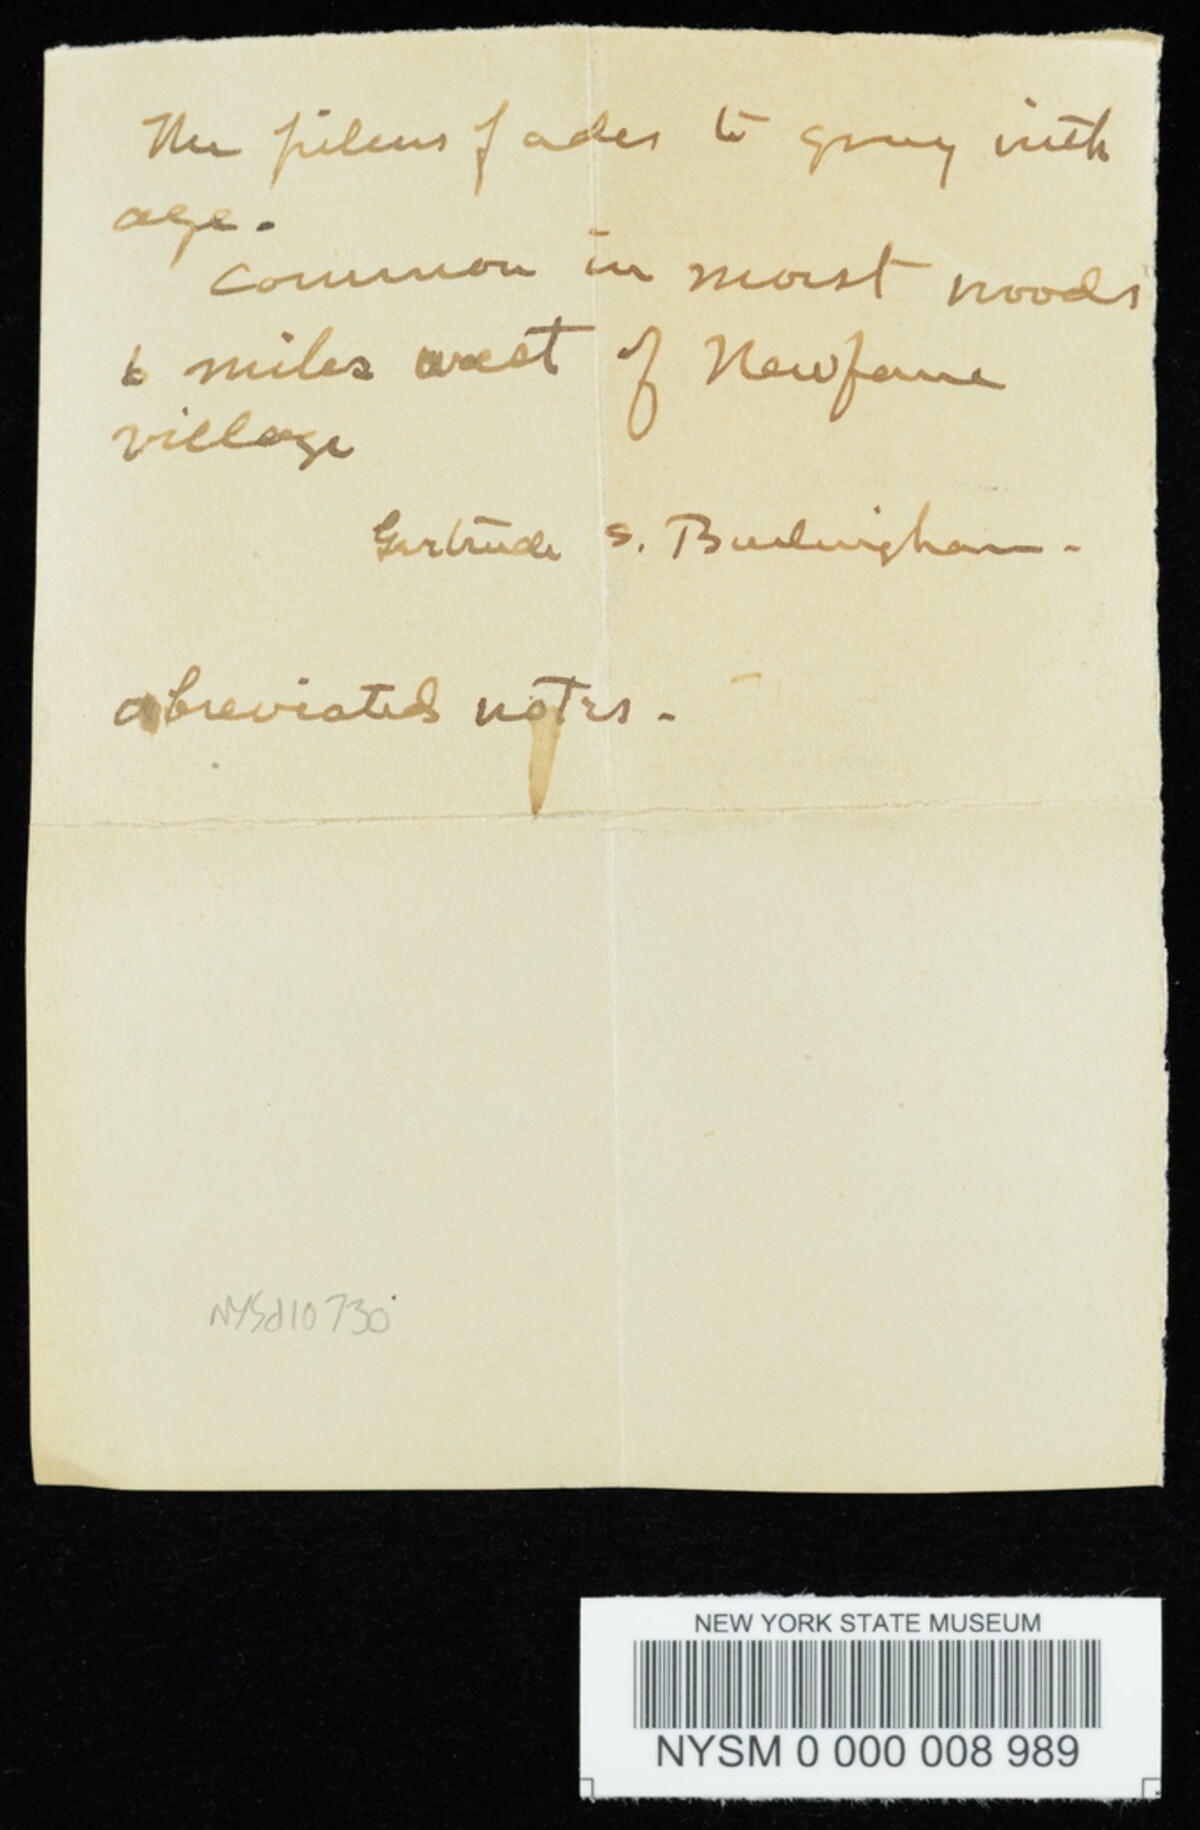 The pileus fades to gray with
age.
Common in moist woods
6 miles west of Newfane
village
Gertrude S. Burlingham -
abreviated notes -
NYSd10730
NEW YORK STATE MUSEUM
NYSM 0 000 008 989